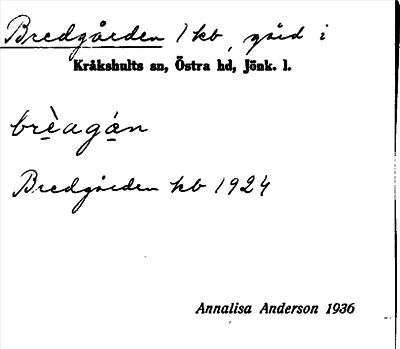 Bredgården 1 kb, gård i
Kråkshults sn, Östra hd, Jönk. l.
brèagán
Bredgården kb 1924
Annalisa Anderson 1936